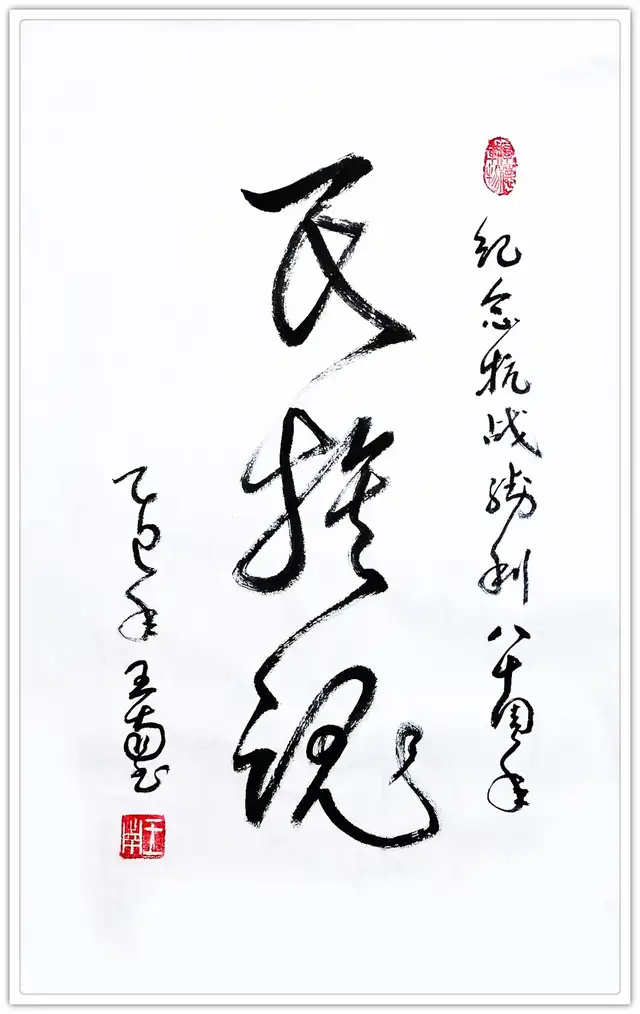 纪念抗战胜利八十周年
民族魂
乙巳年王南书
王南